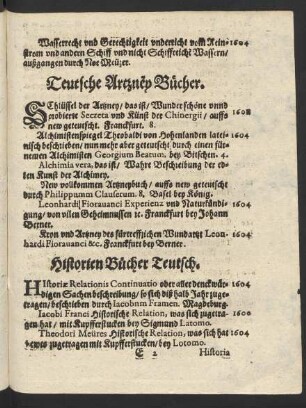 Wasserrecht vnd Gerechtigkeit vndericht vom Rein- 1604
strom vnd andern Schiff vnd nicht Schiffreiche Wassern/
außgangen durch Noe Meürer.
Teutsche Artzney Bücher.
Schlüssel der Artzney / das ist / Wunder schöne vnnd
probierte Secreta vnd Künst der Chirurgii / auffs 1602
new geteutscht. Franckfurt. 8.
Alchimistenspiegel Theobaldi von Hohenlanden latei- 1604
nisch beschrieben / nun mehr aber geteutscht durch einen für
nemmen Alchimisten Georgium Beatum. bey Bitschen. 4.
Alchimia vera, das ist / Wahre Beschreibung der ed-
len Kunst der Alchimey.
New vollkommen Artzneybuch / auffs new geteutscht
durch Philippum Clauserum. 8. Basel bey König.
Leonhardi Fiorauanci Experienz vnd Naturkündi-
gung / von vilen Geheimnussen ꝛc. Franckfurt bey Johann
Berner.
Kron vnd Artzney des fürtrefflichen Wundartzt Leon- 1604
hardi Fiorauanci &c. Franckfurt bey Berner.
Historien Bücher Teutsch.
Historiæ Relationis Continuatio oder aller denckwür-
digen Sachen beschreibung / so sich diß halb Jahr zuge-
tragen / beschrieben durch Iacobum Framen. Magdeburg.
Iacobi Franci Historische Relation, was sich zugetra- 1600
gen hat / mit Kupfferstucken bey Sigmund Latomo.
Theodori Meüres Historische Relation, was sich hat 1604
newes zugetragen mit Kupfferstucken / bey Lotomo.
E 2 Historia